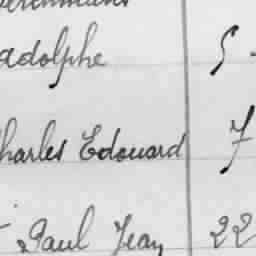 adolphe 5
Charles Edouard 7
Paul Jean 22